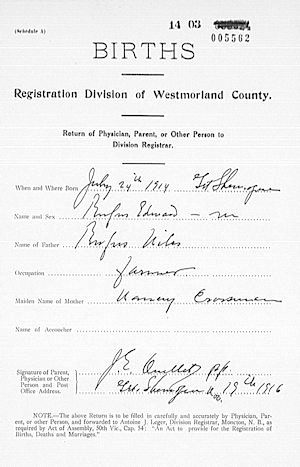 (Schedule A)
14 03
005502
BIRTHS
Registration Division of Westmorland County.
Return of Physician, Parent, or Other Person to
Division Registrar.
When and Where Born July 24th 1914
Name and Sex Rufus Edward - m
Name of Father Rufus
Occupation farmer
Maiden Name of Mother Crossman
Name of Accoucher
Signature of Parent,
Physician or Other
Person and Post
Office Address.
J. E. Ouellet
19th 1916
NOTE.—The above Return is to be filled in carefully and accurately by Physician, Par-
ent, or other Person, and forwarded to Antoine J. Leger, Division Registrar, Moncton, N. B., as
required by Act of Assembly, 50th Vic., Cap. 54: "An Act to provide for the Registration of
Births, Deaths and Marriages."